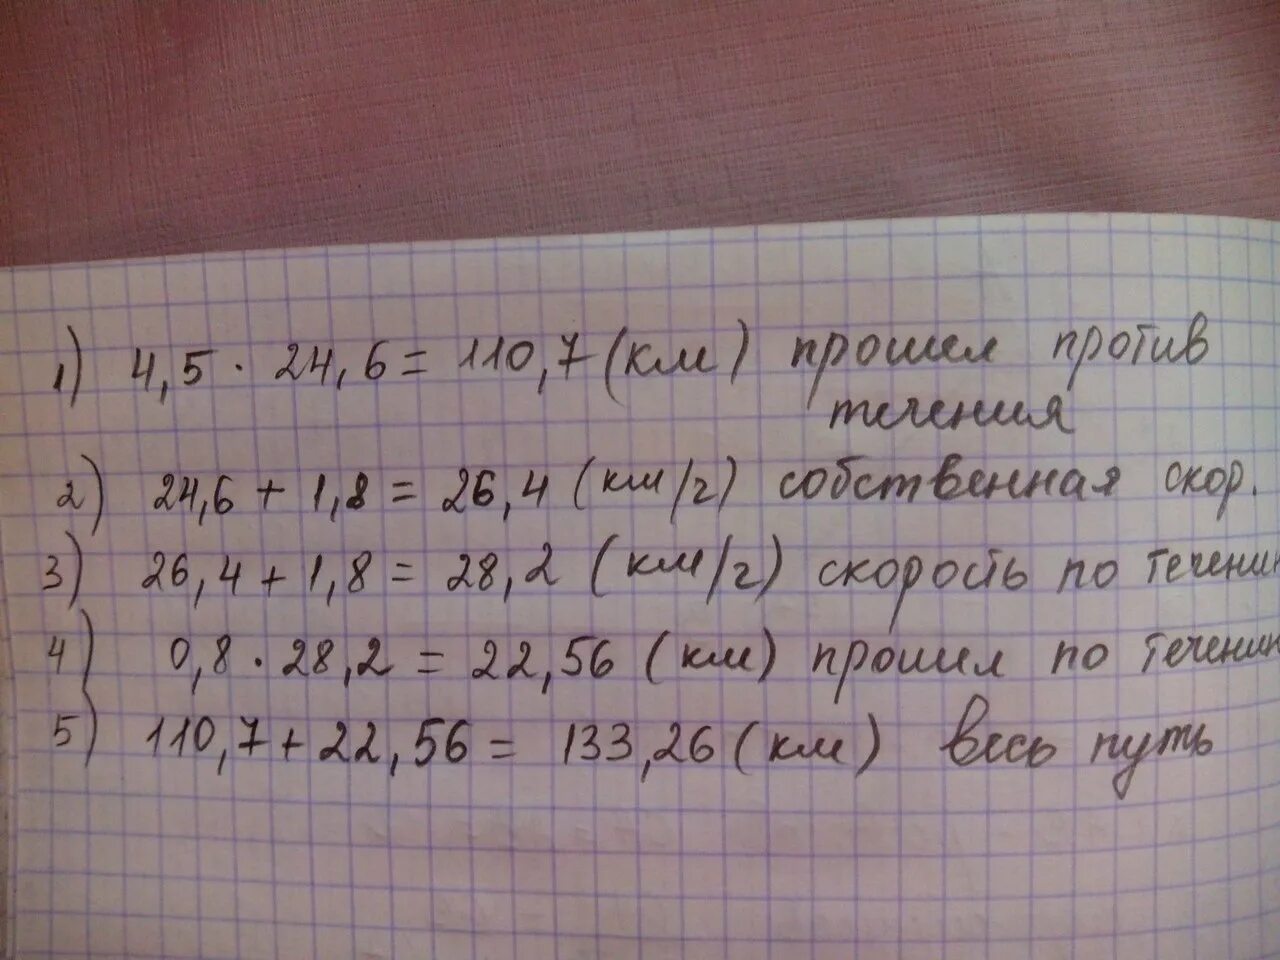 1) 4,5 · 24,6 = 110,7 (км) прошел против
течения
2) 24,6 + 1,8 = 26,4 (км/ч) собственная скор.
3) 26,4 + 1,8 = 28,2 (км/ч) скорость по течени
4) 0,8 · 28,2 = 22,56 (км) прошел по течени
5) 110,7 + 22,56 = 133,26 (км) весь путь